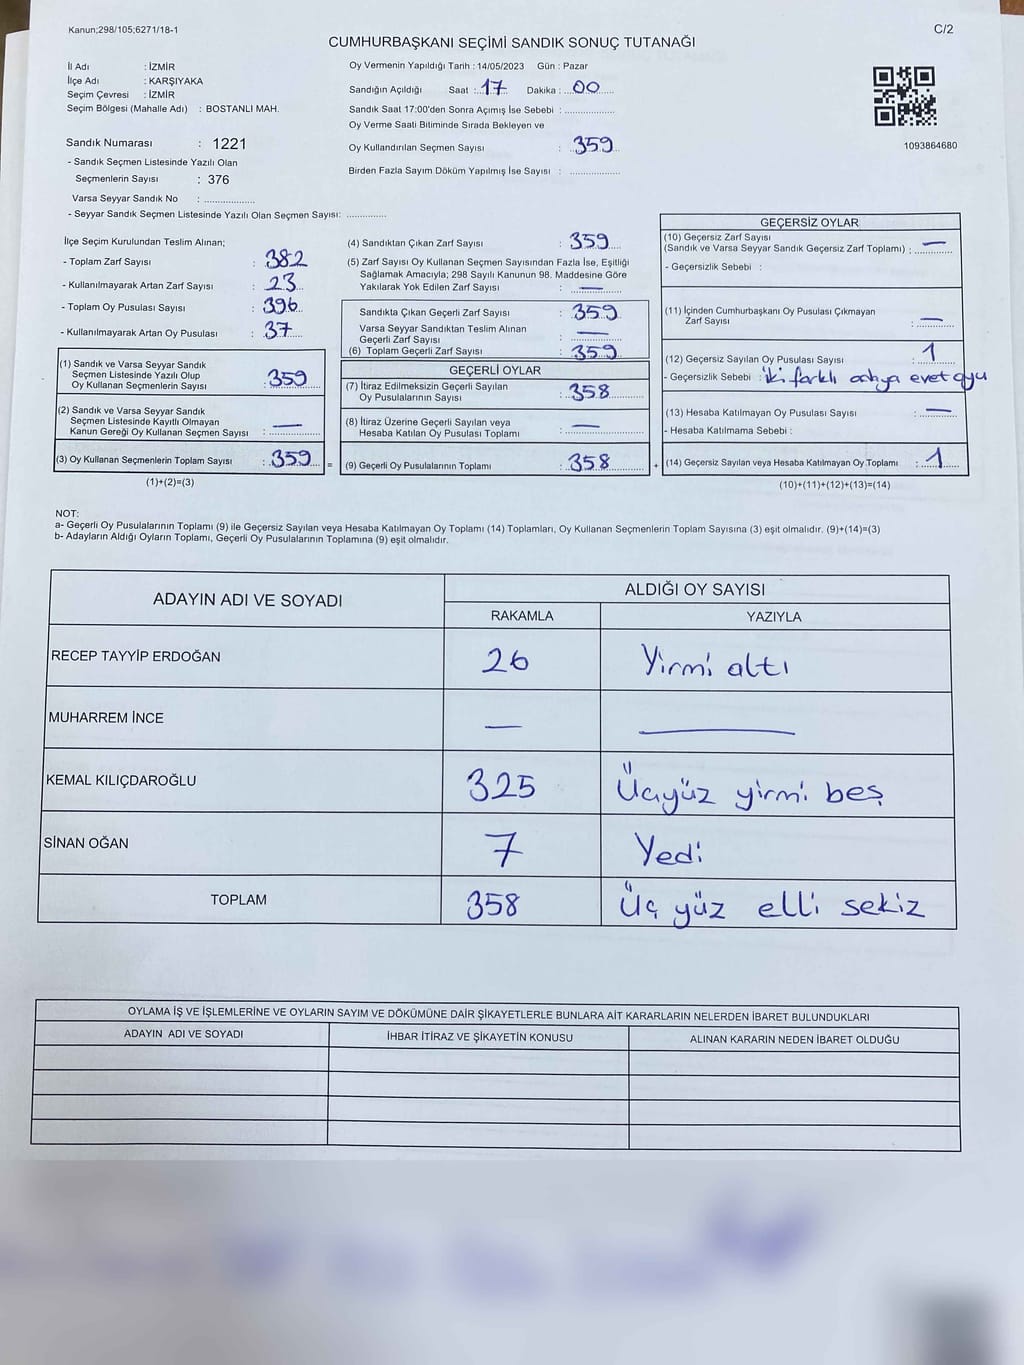 Kanun;298/105;6271/18-1
C/2
CUMHURBAŞKANI SEÇİMİ SANDIK SONUÇ TUTANAĞI
İl Adı : İZMİR
İlçe Adı : KARŞIYAKA
Seçim Çevresi : İZMİR
Seçim Bölgesi (Mahalle Adı) : BOSTANLI MAH.
Sandık Numarası : 1221
- Sandık Seçmen Listesinde Yazılı Olan
Seçmenlerin Sayısı : 376
Varsa Seyyar Sandık No : ................
- Seyyar Sandık Seçmen Listesinde Yazılı Olan Seçmen Sayısı: .............
Oy Vermenin Yapıldığı Tarih : 14/05/2023 Gün : Pazar
Sandığın Açıldığı Saat : 17 Dakika : 00
Sandık Saat 17:00'den Sonra Açımış İse Sebebi : ................
Oy Verme Saati Bitiminde Sırada Bekleyen ve
Oy Kullandırılan Seçmen Sayısı : 359
Birden Fazla Sayım Döküm Yapılmış İse Sayısı : ................
1093864680
İlçe Seçim Kurulundan Teslim Alınan;
- Toplam Zarf Sayısı : 382
- Kullanılmayarak Artan Zarf Sayısı : 23
- Toplam Oy Pusulası Sayısı : 396
- Kullanılmayarak Artan Oy Pusulası : 37
(1) Sandık ve Varsa Seyyar Sandık
Seçmen Listesinde Yazılı Olup
Oy Kullanan Seçmenlerin Sayısı : 359
(2) Sandık ve Varsa Seyyar Sandık
Seçmen Listesinde Kayıtlı Olmayan
Kanun Gereği Oy Kullanan Seçmen Sayısı : —
(3) Oy Kullanan Seçmenlerin Toplam Sayısı : 359 =
(1)+(2)=(3)
(4) Sandıktan Çıkan Zarf Sayısı : 359
(5) Zarf Sayısı Oy Kullanan Seçmen Sayısından Fazla İse, Eşitliği
Sağlamak Amacıyla; 298 Sayılı Kanunun 98. Maddesine Göre
Yakılarak Yok Edilen Zarf Sayısı : —
Sandıkta Çıkan Geçerli Zarf Sayısı : 359
Varsa Seyyar Sandıktan Teslim Alınan
Geçerli Zarf Sayısı : —
(6) Toplam Geçerli Zarf Sayısı : 359
GEÇERLİ OYLAR
(7) İtiraz Edilmeksizin Geçerli Sayılan
Oy Pusulalarının Sayısı : 358
(8) İtiraz Üzerine Geçerli Sayılan veya
Hesaba Katılan Oy Pusulası Toplamı : —
(9) Geçerli Oy Pusulalarının Toplamı : 358 +
GEÇERSİZ OYLAR
(10) Geçersiz Zarf Sayısı
(Sandık ve Varsa Seyyar Sandık Geçersiz Zarf Toplamı) : —
- Geçersizlik Sebebi :
(11) İçinden Cumhurbaşkanı Oy Pusulası Çıkmayan
Zarf Sayısı : —
(12) Geçersiz Sayılan Oy Pusulası Sayısı : 1
- Geçersizlik Sebebi : İki farklı adaya evet oyu
(13) Hesaba Katılmayan Oy Pusulası Sayısı : —
- Hesaba Katılmama Sebebi :
(14) Geçersiz Sayılan veya Hesaba Katılmayan Oy Toplamı : 1
(10)+(11)+(12)+(13)=(14)
NOT:
a- Geçerli Oy Pusulalarının Toplamı (9) ile Geçersiz Sayılan veya Hesaba Katılmayan Oy Toplamı (14) Toplamları, Oy Kullanan Seçmenlerin Toplam Sayısına (3) eşit olmalıdır. (9)+(14)=(3)
b- Adayların Aldığı Oyların Toplamı, Geçerli Oy Pusulalarının Toplamına (9) eşit olmalıdır.
ADAYIN ADI VE SOYADI
ALDIĞI OY SAYISI
RAKAMLA YAZIYLA
RECEP TAYYİP ERDOĞAN 26 Yirmi altı
MUHARREM İNCE — —
KEMAL KILIÇDAROĞLU 325 Üçyüz yirmi beş
SİNAN OĞAN 7 Yedi
TOPLAM 358 Üç yüz elli sekiz
OYLAMA İŞ VE İŞLEMLERİNE VE OYLARIN SAYIM VE DÖKÜMÜNE DAİR ŞİKAYETLERLE BUNLARA AİT KARARLARIN NELERDEN İBARET BULUNDUKLARI
ADAYIN ADI VE SOYADI İHBAR İTİRAZ VE ŞİKAYETİN KONUSU ALINAN KARARIN NEDEN İBARET OLDUĞU